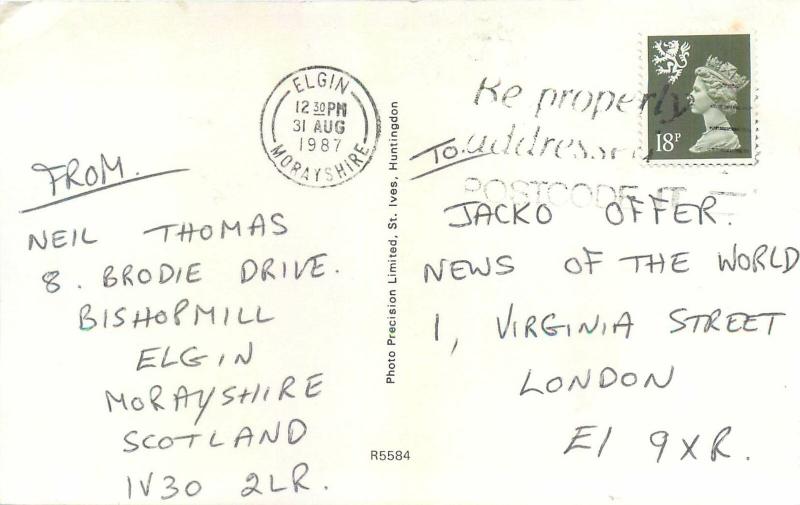 FROM.
NEIL THOMAS
8. BRODIE DRIVE.
BISHOPMILL
ELGIN
MORAYSHIRE
SCOTLAND
IV30 2LR.
ELGIN
12 30 PM
31 AUG
1987
MORAYSHIRE
Photo Precision Limited, St. Ives, Huntingdon
R5584
Be properly
addressed
POSTCODE IT
18P
TO.
JACKO OFFER.
NEWS OF THE WORLD
1, VIRGINIA STREET
LONDON
E1 9XR.